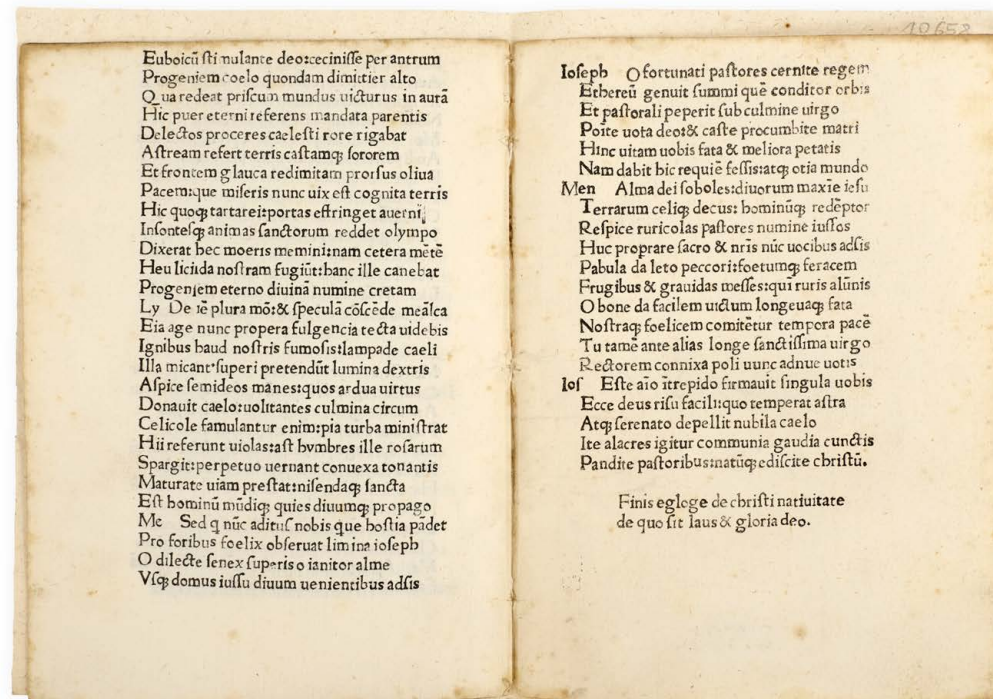 10658
Euboicũ ſtimulante deo:ceciniſſe per antrum
Progeniem coelo quondam dimittier alto
Qua redeat priſcum mundus uicturus in aurã
Hic puer eterni referens mandata parentis
Delectos proceres caeleſti rore rigabat
Aſtream refert terris caſtamqꝫ ſororem
Et frontem glauca redimitam prorſus oliua
Pacem:que miſeris nunc uix eſt cognita terris
Hic quoqꝫ tartarei:portas effringet auerni
Inſonteſqꝫ animas ſanctorum reddet olympo
Dixerat hec moeris memini:nam cetera mẽtẽ
Heu licida noſtram fugiũt:hanc ille canebat
Progeniem eterno diuinã numine cretam
Ly De iẽ plura mõ:& ſpeculã cõſcẽde meãlca
Eia age nunc propera fulgencia tecta uidebis
Ignibus haud noſtris fumoſis:lampade caeli
Illa micant ſuperi pretendũt lumina dextris
Aſpice ſemideos manes:quos ardua uirtus
Donauit caelo:uolitantes culmina circum
Celicole famulantur enim:pia turba miniſtrat
Hii referunt uiolas:aſt hymbres ille roſarum
Spargit:perpetuo uernant conuexa tonantis
Maturate uiam preſtat:niſendaqꝫ ſancta
Eſt hominũ mũdiqꝫ quies diuumqꝫ propago
Me Sed q nũc adituſ nobis que hoſtia pãdet
Pro foribus foelix obſeruat limina ioſeph
O dilecte ſenex ſuperis o ianitor alme
Vſqꝫ domus iuſſu diuum uenientibus adſis
Ioſeph O fortunati paſtores cernite regem
Ethereũ genuit ſummi quẽ conditor orbis
Et paſtorali peperit ſub culmine uirgo
Poite uota deo:& caſte procumbite matri
Hinc uitam uobis fata & meliora petatis
Nam dabit hic requiẽ feſſis:atqꝫ otia mundo
Men Alma dei ſoboles:diuorum maxĩe ieſu
Terrarum celiqꝫ decus: hominũqꝫ redẽptor
Reſpice ruricolas paſtores numine iuſſos
Huc proprare ſacro & nr̃is nũc uocibus adſis
Pabula da leto peccori:foetumqꝫ feracem
Frugibus & grauidas meſſes:qui ruris alũnis
O bone da facilem uictum longeuaqꝫ fata
Noſtraqꝫ foelicem comitẽtur tempora pacẽ
Tu tamẽ ante alias longe ſanctiſſima uirgo
Rectorem connixa poli nunc adnue uotis
Ioſ Eſte aĩo ĩtrepido firmauit ſingula uobis
Ecce deus riſu facili:quo temperat aſtra
Atqꝫ ſerenato depellit nubila caelo
Ite alacres igitur communia gaudia cunctis
Pandite paſtoribus:natũqꝫ ediſcite chriſtũ.
Finis egloge de chriſti natiuitate
de quo ſit laus & gloria deo.